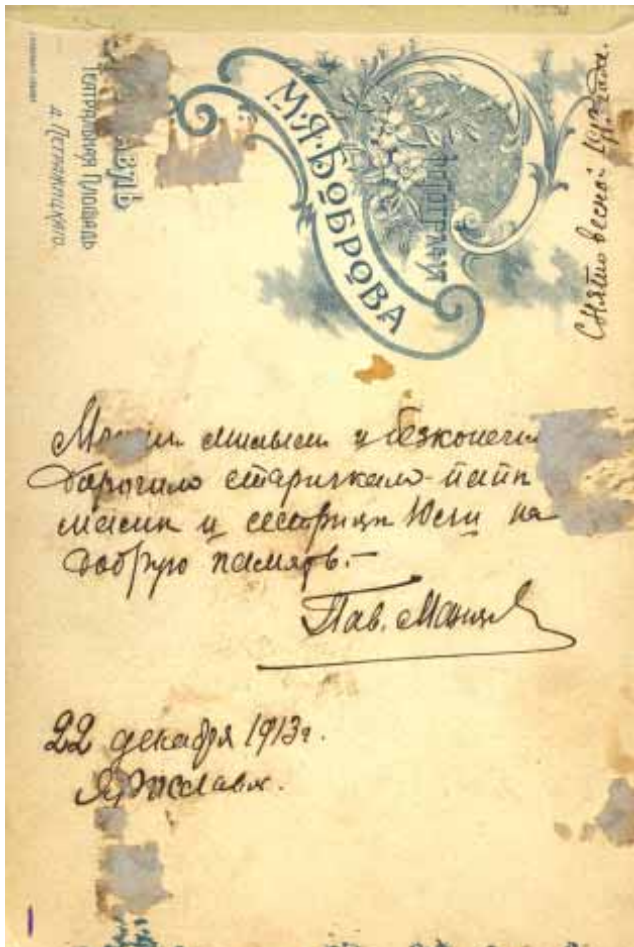 ФОТОГРАФІЯ
М. Я. БОБРОВА
Театральная Площадь
Снято весной 1913 года.
милым и безконечно
дорогимъ старичкамъ - папѣ
мамѣ и сестрицѣ Юсѣ на
добрую память. –
Пав.
22 декабря 1913 г.
Ярославль.